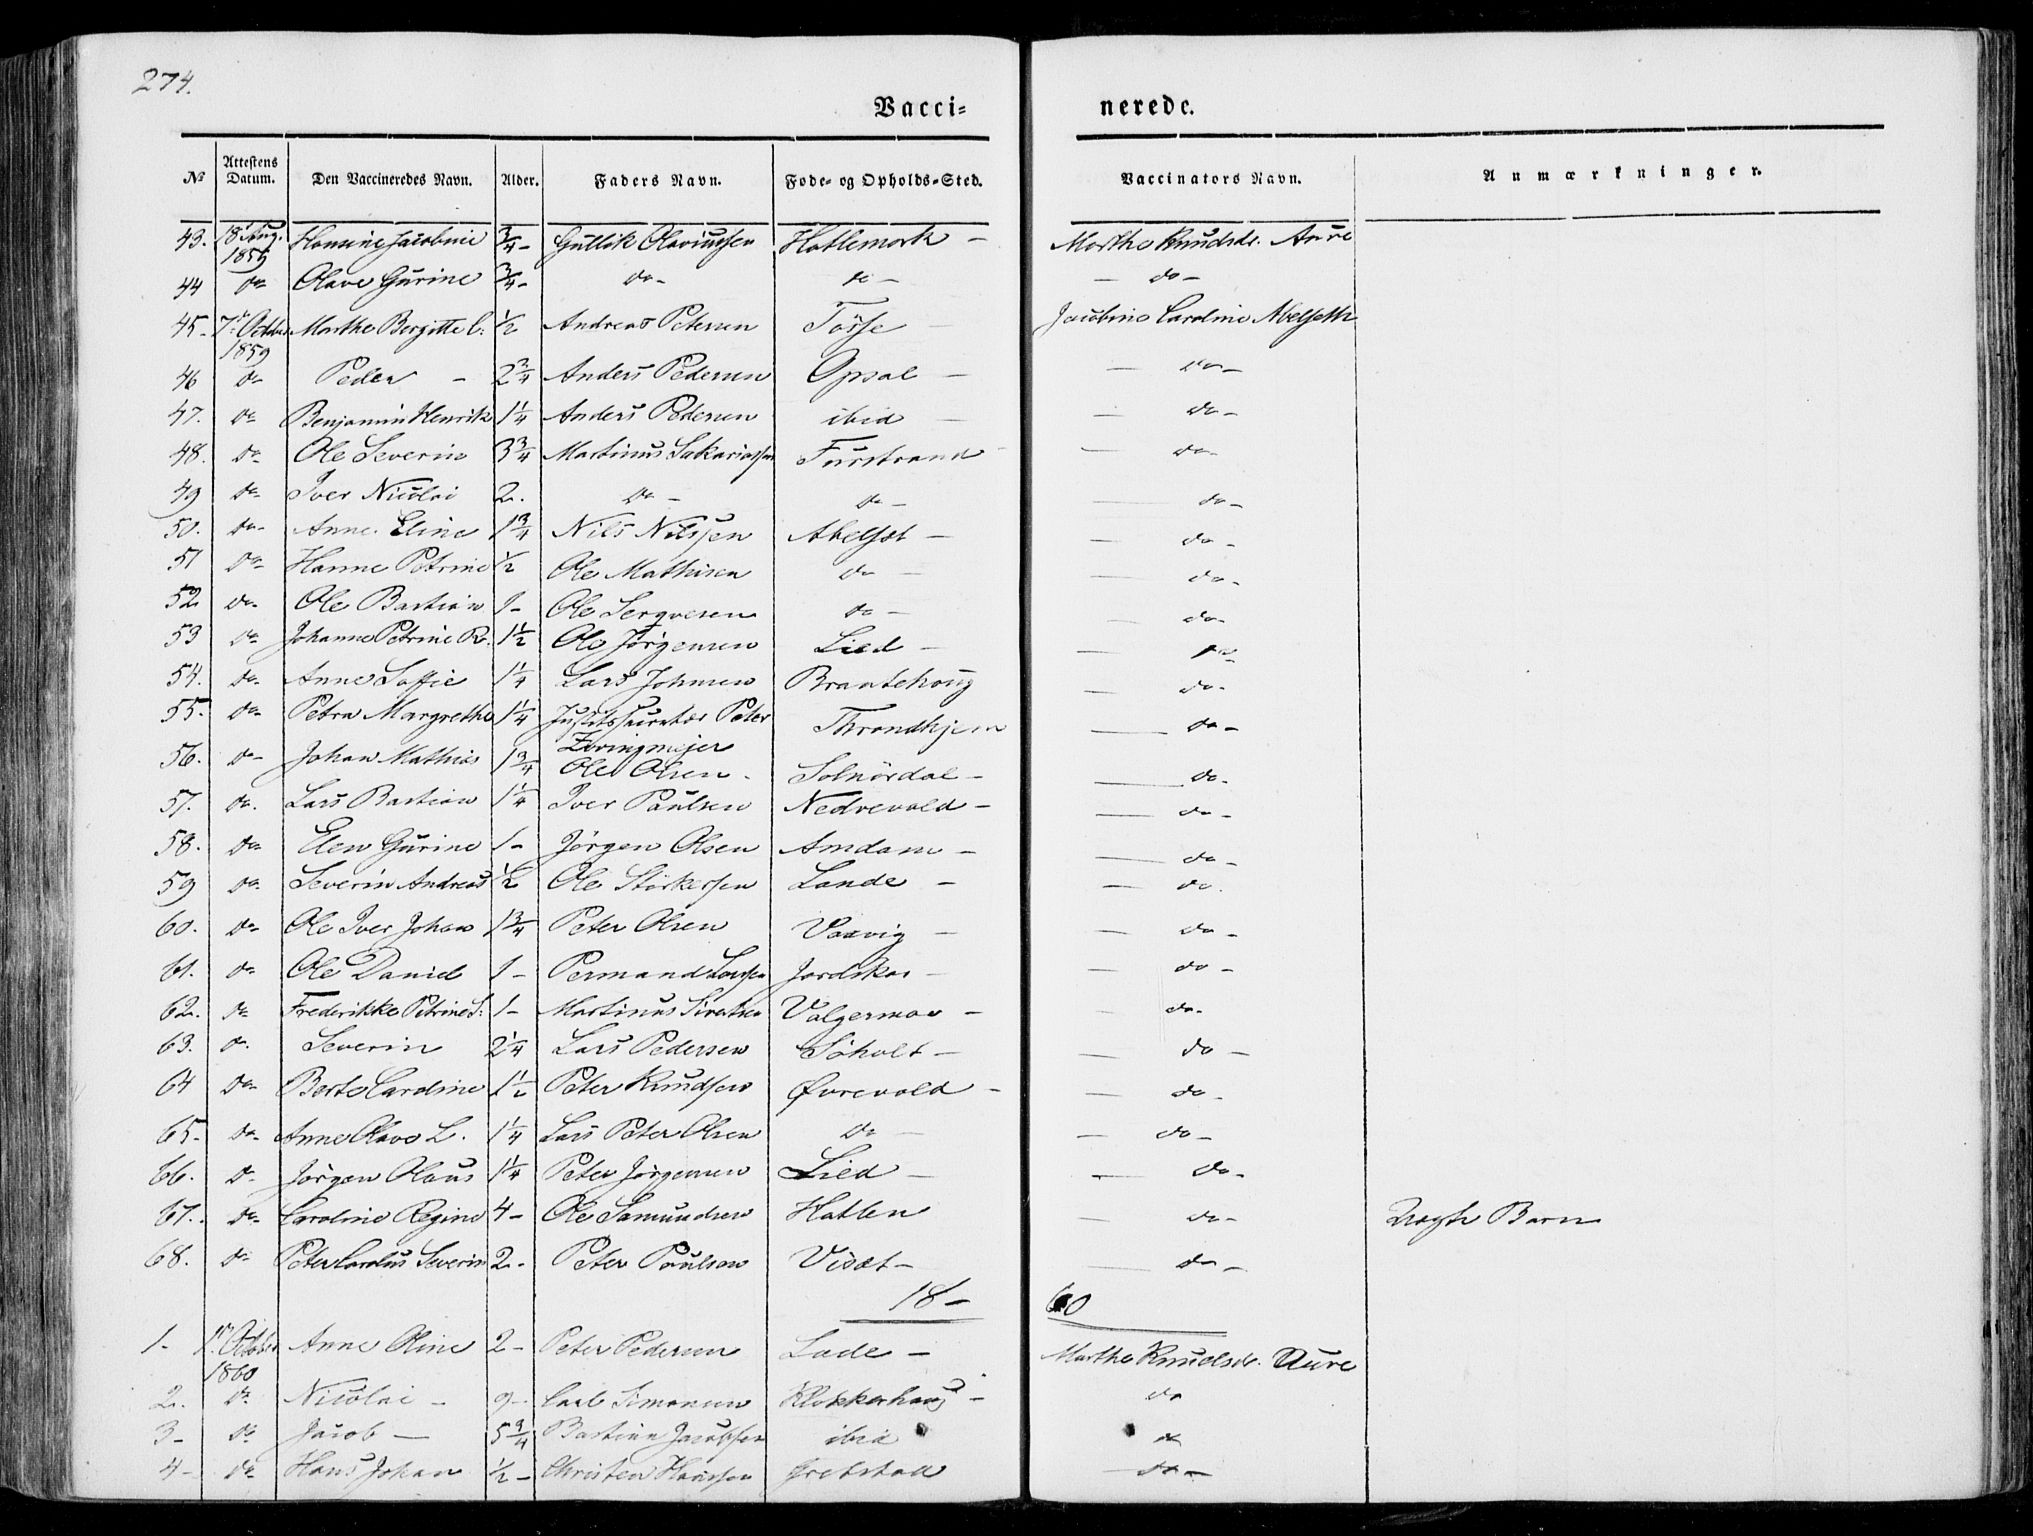 274.
Vacci= nerede.
No Attestens Datum. Den Vaccineredes Navn. Alder. Faders Navn. Føde= og Opholds=Sted. Vaccinators Navn. Anmærkninger.
43. 18 Aug. 1859 Hansine Jacobine 3/4 - Gullik Olaviussen Hatlemark - Marthe Knudsdr. Aure
44 do Olave Gurine 3/4 - do - do - - do -
45 - 7de October 1859 Marthe Bergitte C: 1/2 Andreas Petersen Tøsse Jacobine Caroline Abelseth
46 do Peder - 2 3/4 Anders Pedersen Opsal - - do -
47. do Benjamin Henrik 1 1/4 Anders Pedersen ibid - - do -
48. do Ole Severin 3 3/4 Martinus Sakariassen Furstrand - - do -
49 do Iver Nicolai 2. do - do - - do -
50. do - Anne Eline 1 3/4 Nils Nilssen Abelset - - do -
51 do Hanne Petrine 1/2 Ole Mathisen do - - do -
52 do - Ole Bastian 1 - Ole Sergvesen do - - do -
53 do Johanne Petrine R. 1 1/2 Ole Jørgensen Lied - - do -
54. do - Anne Soffie 1 1/4 Lars Johnsen Brautehoug - do -
55. do - Petra Margrethe 1 1/4 Peter Throndhjem - do -
Zwingmejer
56. do - Johan Mathias 1 3/4 Ole Olsen - Solnørdal - - do -
57. do. Lars Bastian 1 1/4 Iver Paulsen Nedrevold - - do -
58. do Elen Gurine 1 - Jørgen Olsen Amdam - - do -
59 do. Severin Andreas 1/2 Ole Størkersen Lande - - do.
60. do - Ole Iver Johan 1 3/4 Peter Olsen Vaxvig - - do -
61. do Ole Daniel 1 - Permand Larsen Jordskar - - do -
62. do Frederikke Petrine S: 1 - Martinus Sivertsen Valgermoe - - do -
63. do. Severin 2 1/4 Lars Pedersen Søholt - - do -
64 do - Berte Caroline 1 1/2 Peter Knudsen Øvrevold - - do -
65 - do - Anne Olave L. 1 1/4 Lars Peter Olsen do - - do -
66. do Jørgen Olaus 1 1/4 Peter Jørgensen Lied - - do -
67. do - Caroline Regine 4 - Ole Samundsen Hatlen - do - Uægte Barn
68. do Peter Carolus Severin 2 - Peter Paulsen Viset - - do -
18 - 60
1 - 1. October 1860 Anne Oline 2 - Peter Pedersen Lade - Marthe Knudsdr. Aure
2. do Nicolai - 9 - Carl Simonsen Klokkerhaug - do
3 - do Jacob - 5 3/4 Bastian Jacobsen ibid do
4 - do Hans Johan 1/2 - Christen Hanssen Grebstad - do -